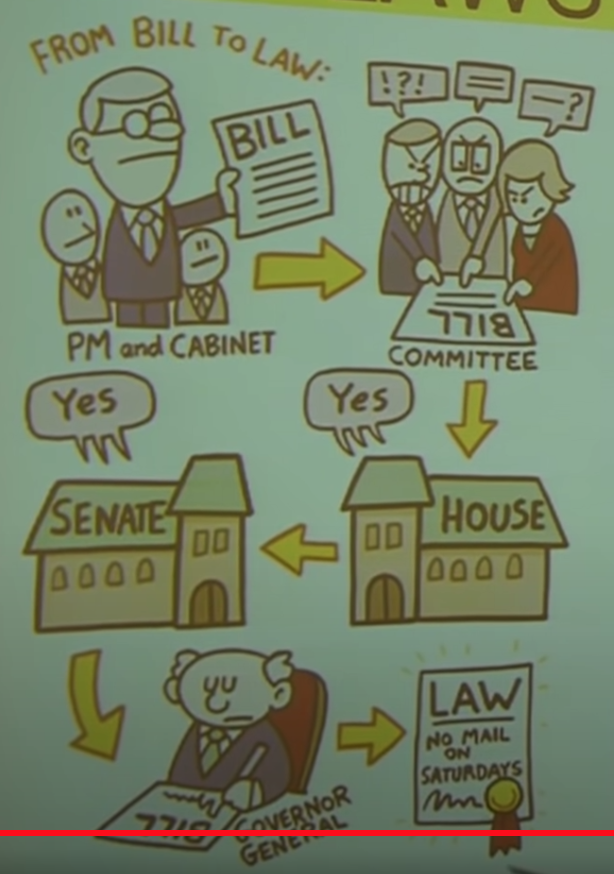 LAWS
FROM BILL TO LAW:
BILL
PM and CABINET
!?!
—?
BILL
COMMITTEE
Yes
Yes
SENATE
HOUSE
BILL
GOVERNOR
GENERAL
LAW
NO MAIL
ON
SATURDAYS